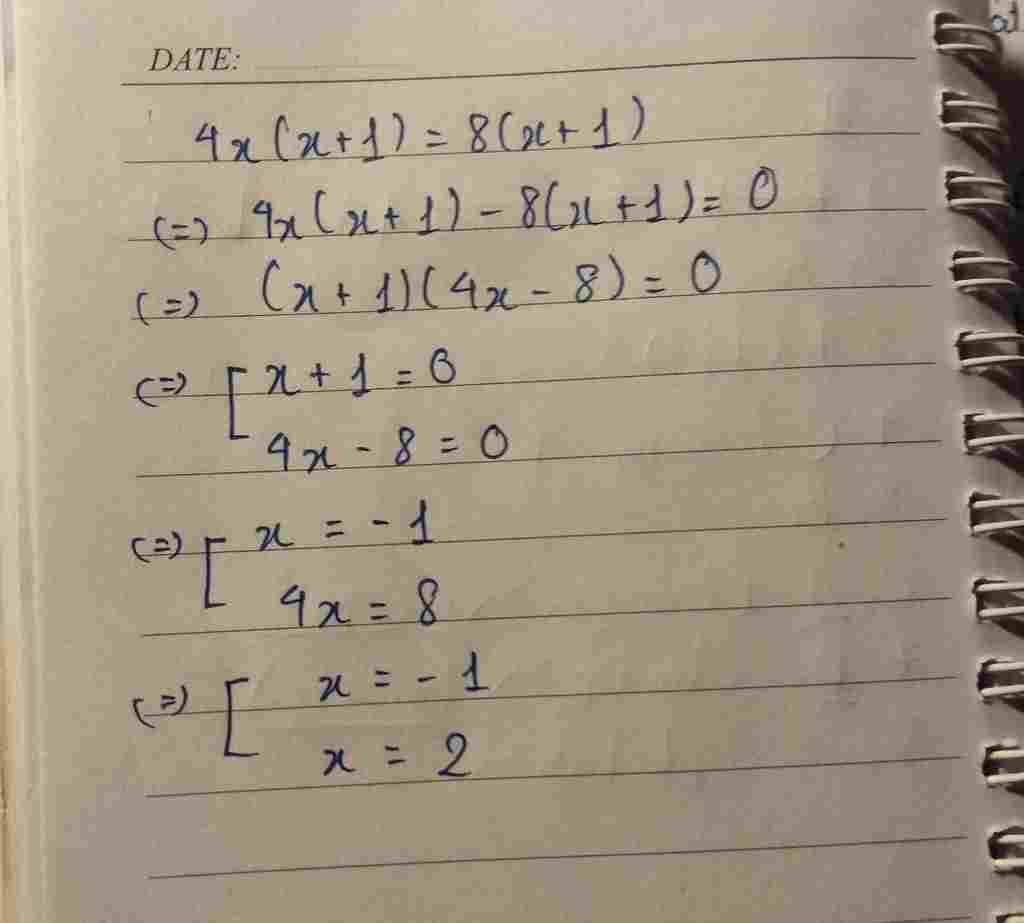 DATE:
4x(x+1)=8(x+1)
(=) 4x(x+1)-8(x+1)=0
(=) (x+1)(4x-8)=0
(=) [ x+1=0
4x-8=0
(=) [ x=-1
4x=8
(=) [ x=-1
x=2